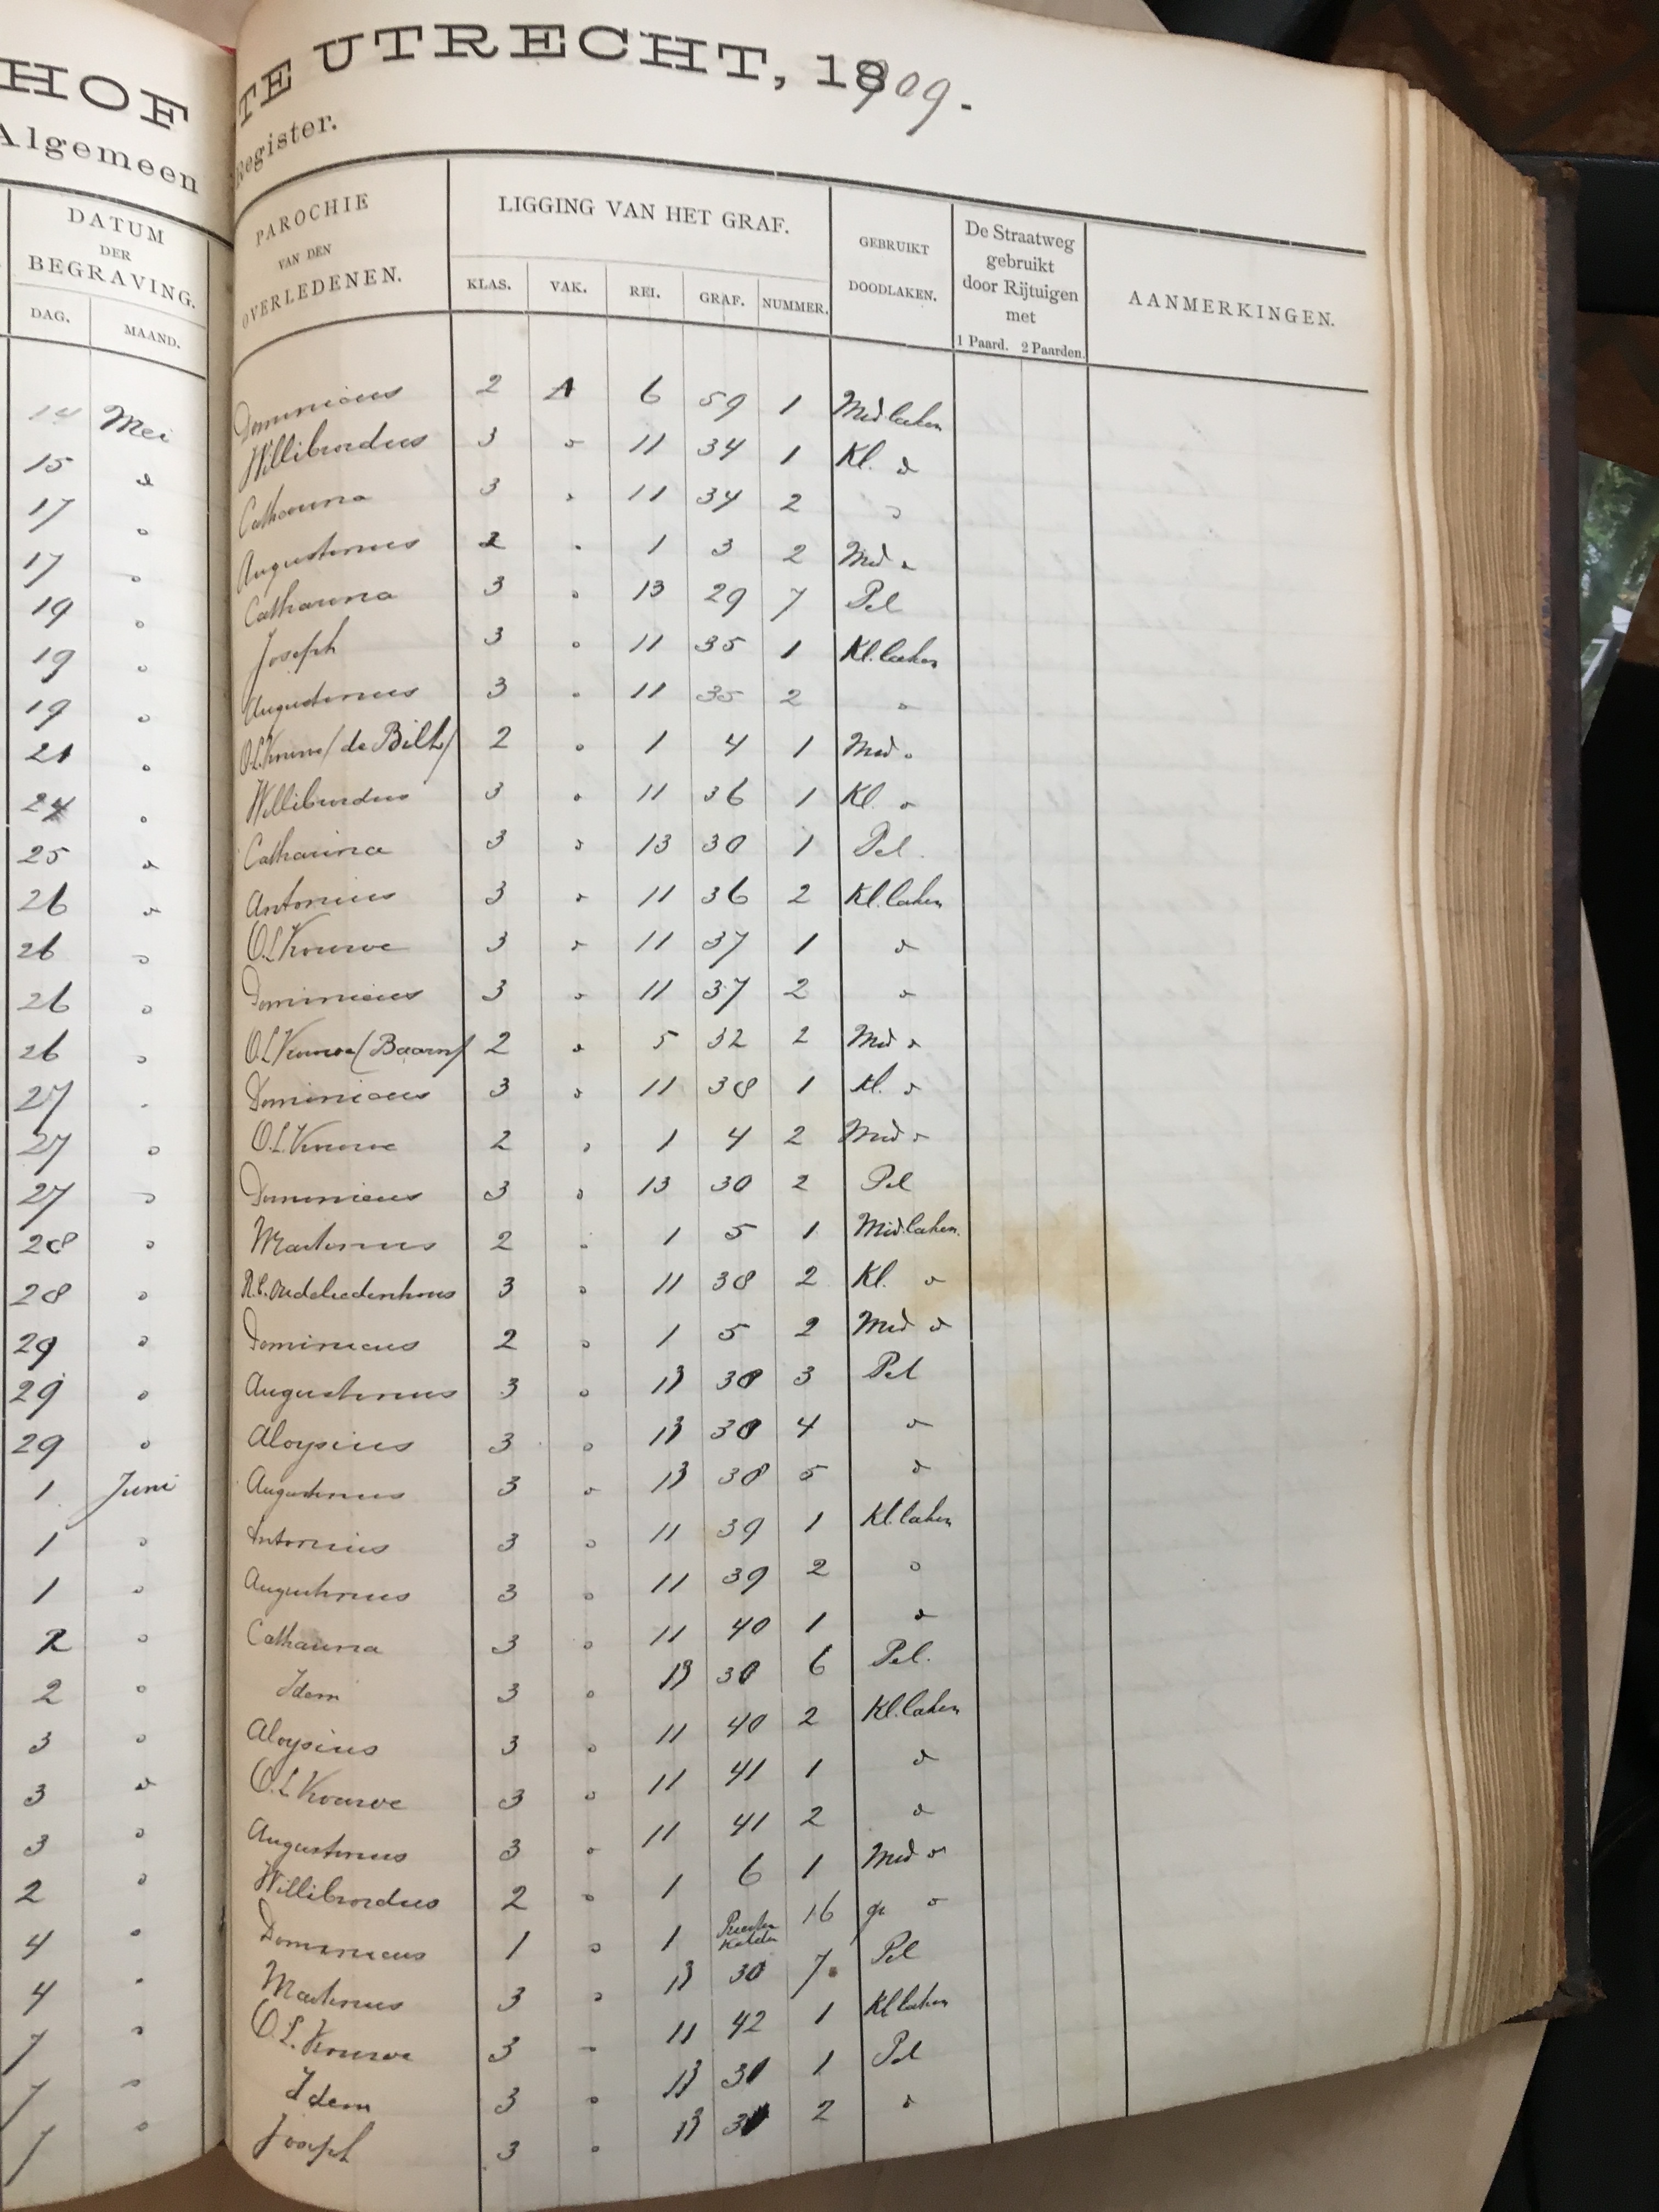 HOF TE UTRECHT, 1909.
Algemeen Register.
DATUM DER BEGRAVING.
DAG. MAAND.
PAROCHIE VAN DEN OVERLEDENEN.
LIGGING VAN HET GRAF.
KLAS. VAK. REI. GRAF. NUMMER.
GEBRUIKT DOODLAKEN.
De Straatweg gebruikt door Rijtuigen met
1 Paard. 2 Paarden.
AANMERKINGEN.
14 Mei Dominicus 2 A 6 59 1 Mid laken
15 " Willibrordus 3 " 11 34 1 Kl. "
17 " Catharina 3 " 11 34 2 "
17 " Augustinus 2 " 1 3 2 Mid "
19 " Catharina 3 " 13 29 7 Pel
19 " Joseph 3 " 11 35 1 Kl. laken
19 " Augustinus 3 " 11 35 2 "
21 " O.L. Vrouw (de Bilt) 2 " 1 4 1 Mid "
24 " Willibrordus 3 " 11 36 1 Kl. "
25 " Catharina 3 " 13 30 1 Pel.
26 " Antonius 3 " 11 36 2 Kl. laken
26 " O.L. Vrouwe 3 " 11 37 1 "
26 " Dominicus 3 " 11 37 2 "
26 " O.L. Vrouwe (Baarn) 2 " 5 32 2 Mid "
27 " Dominicus 3 " 11 38 1 kl. "
27 " O.L. Vrouwe 2 " 1 4 2 Mid "
27 " Dominicus 3 " 13 30 2 Pel
28 " Martinus 2 " 1 5 1 Mid. laken.
28 " R.C. Oudeliedenhuis 3 " 11 38 2 Kl. "
29 " Dominicus 2 " 1 5 2 Mid "
29 " Augustinus 3 " 13 30 3 Pel
29 " Aloysius 3 " 13 30 4 "
1 Juni Augustinus 3 " 13 30 5 "
1 " Antonius 3 " 11 39 1 Kl. laken
1 " Augustinus 3 " 11 39 2 "
2 " Catharina 3 " 11 40 1 "
2 " Idem 3 " 13 30 6 Pel.
3 " Aloysius 3 " 11 40 2 Kl. laken
3 " O.L. Vrouwe 3 " 11 41 1 "
3 " Augustinus 3 " 11 41 2 "
2 " Willibrordus 2 " 1 6 1 Mid "
4 " Dominicus 1 " 1 Priester Kelder 16 gr "
4 " Martinus 3 " 13 30 7 Pel
7 " O.L. Vrouwe 3 " 11 42 1 Kl laken
7 " Idem 3 " 13 31 1 Pel
7 " Joseph 3 " 13 31 2 "